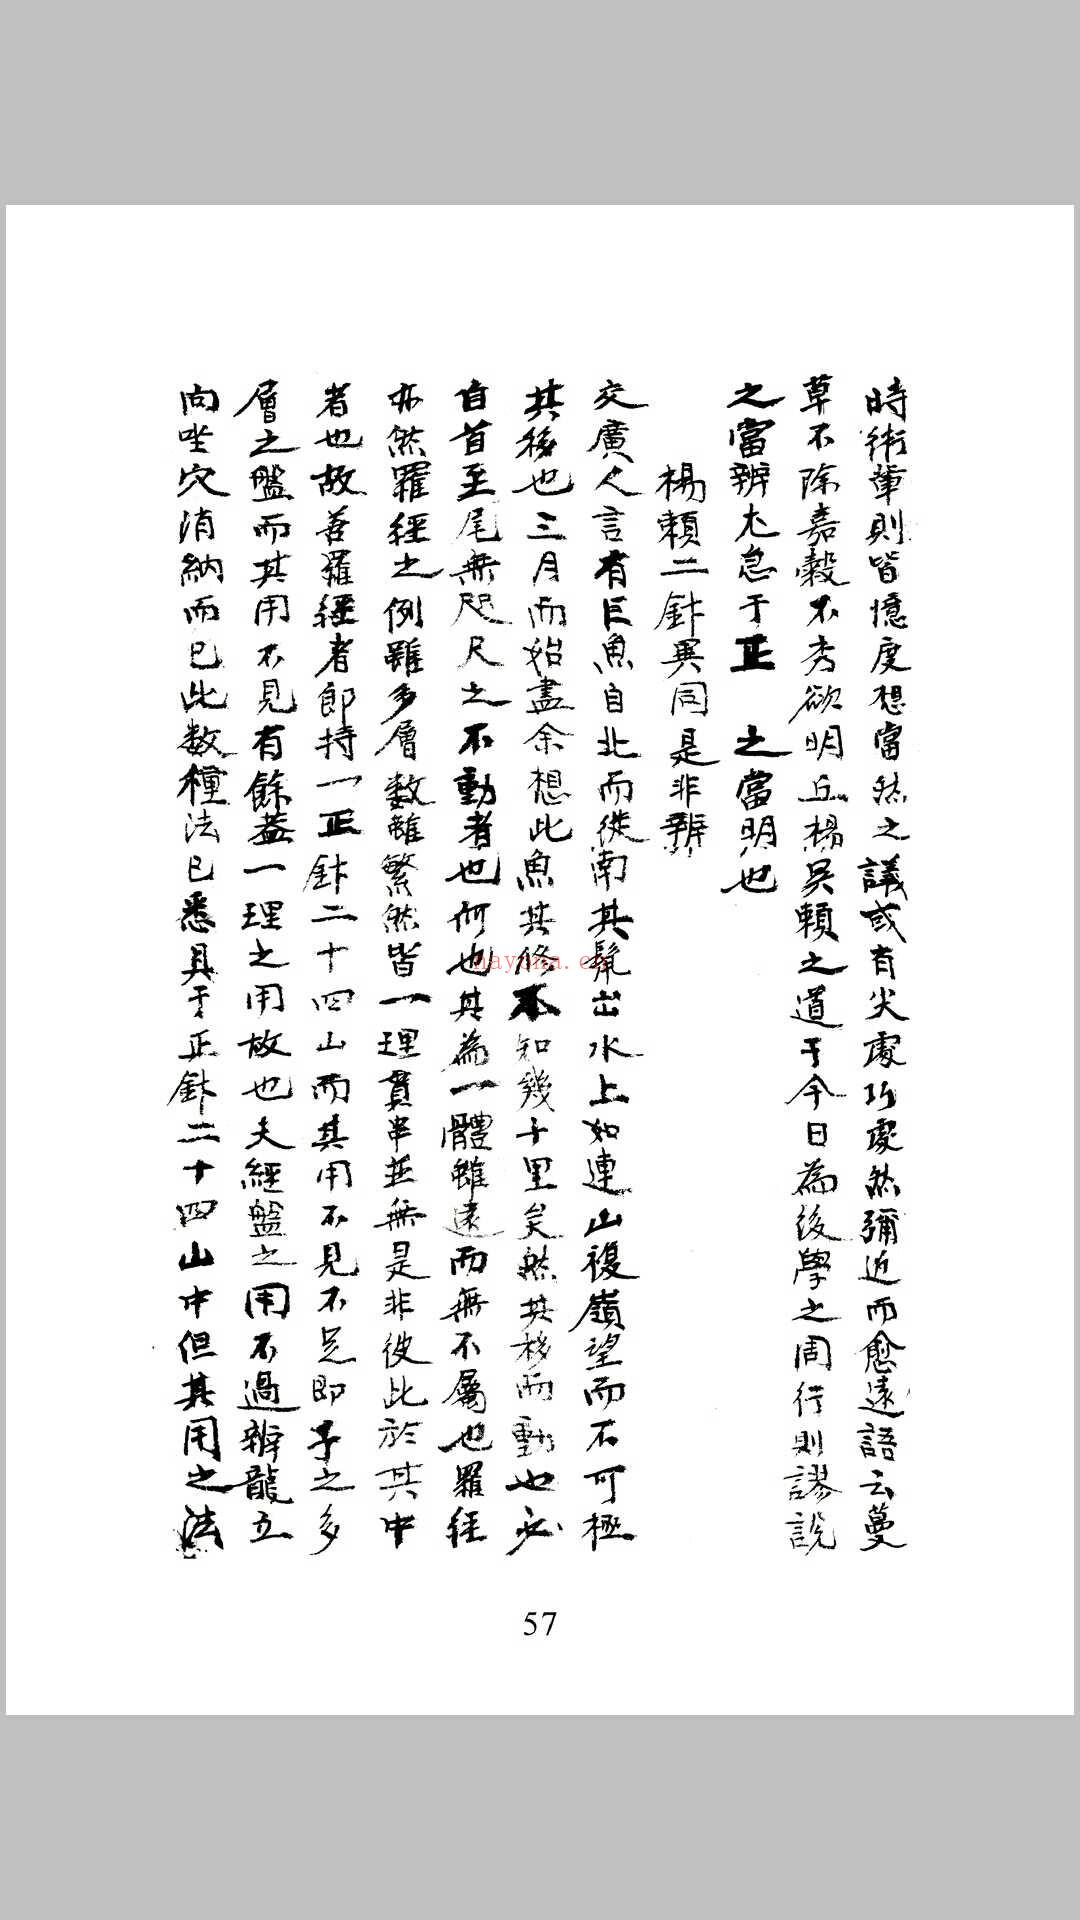 時術輩則皆憶度想當然之議或有尖處巧處然彌近而愈遠語云蔓
草不除嘉穀不秀欲明丘楊吳賴之道于今日為後學之周行則謬說
之當辨尤急于正 之當明也
楊賴二針異同是非辨
交廣人言有巨魚自北而從南其鬣出水上如連山複嶺望而不可極
其移也三月而始盡余想此魚其修不知幾十里矣然其移而動也必
自首至尾無咫尺之不動者也何也其為一體雖遠而無不屬也羅經
亦然羅經之例雖多層數雖繁然皆一理貫串並無是非彼此於其中
者也故善羅經者即持一正針二十四山而其用不見不足即予之多
層之盤而其用不見有餘蓋一理之用故也夫經盤之用不過辨龍立
向坐穴消納而已此数種法已悉具于正針二十四山中但其用之法
57